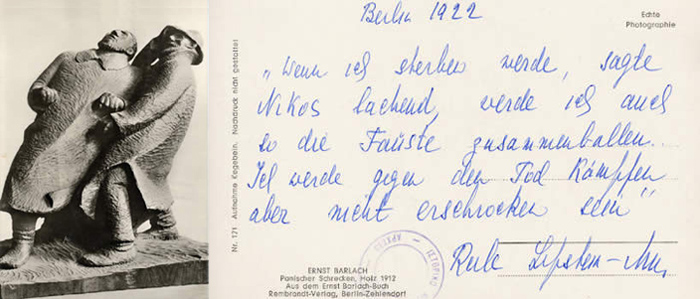 Berlin 1922
Echte
Photographie
„Wenn ich sterben werde, sagte
Nikos lachend, werde ich auch
so die Fäuste zusammenballen.
Ich werde gegen den Tod kämpfen
aber nicht erschrocken sein"
Nr. 171 Aufnahme Kegebein. Nachdruck nicht gestattet
ERNST BARLACH
Panischer Schrecken, Holz 1912
Aus dem Ernst Barlach-Buch
Rembrandt-Verlag, Berlin-Zehlendorf